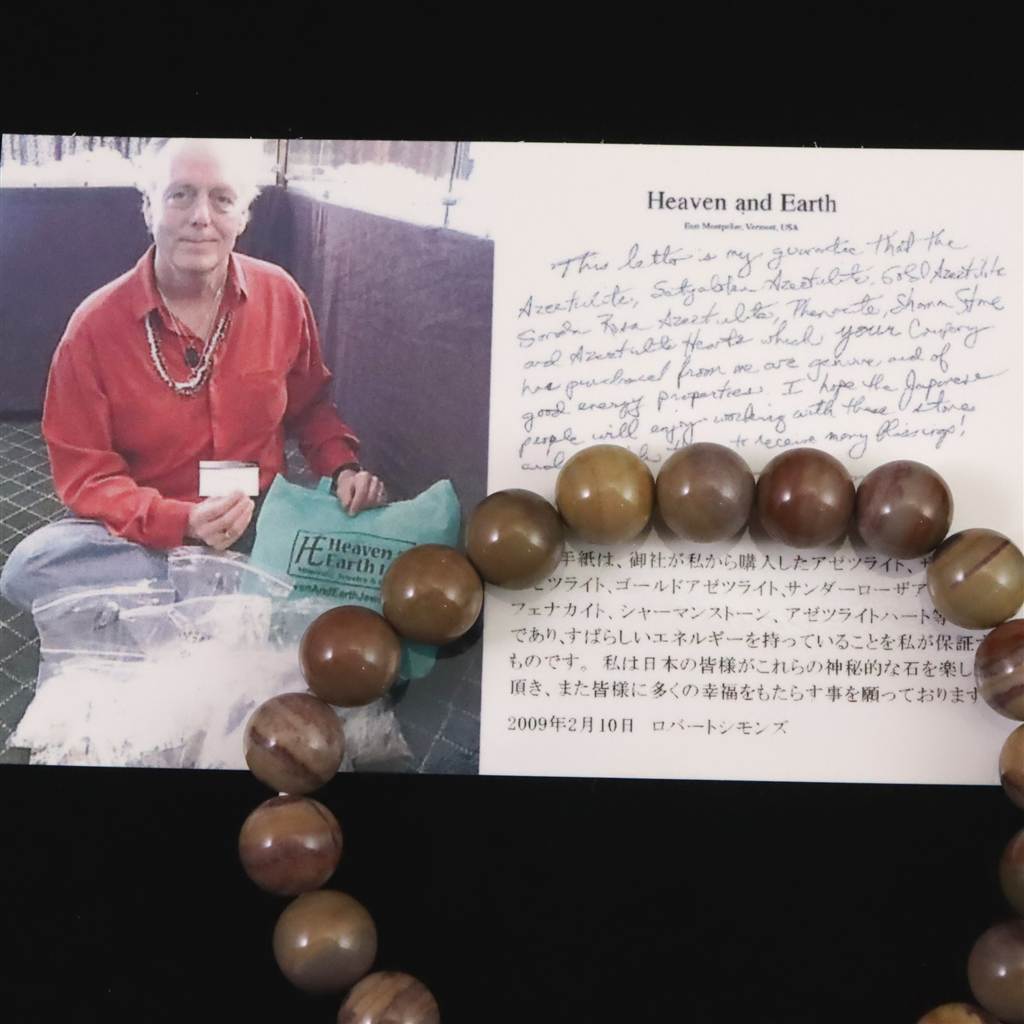 Heaven and Earth
East Montpelier, Vermont, USA
This letter is my guarantee that the
Azeztulite, Satyaloka Azeztulite, Gold Azeztulite
Rosa Azeztulite, Phenacite, Shaman Stone
and Azeztulite Hearts which your Company
has purchased from me are genuine, and of
good energy properties. I hope the Japanese
people will enjoy working with these stones
to receive many blessings!
手紙は、御社が私から購入したアゼツライト、
ツライト、ゴールドアゼツライト、サンダーローザア
フェナカイト、シャーマンストーン、アゼツライトハート等
であり、すばらしいエネルギーを持っていることを私が保証す
ものです。 私は日本の皆様がこれらの神秘的な石を楽し
頂き、また皆様に多くの幸福をもたらす事を願っております
2009年2月10日 ロバートシモンズ
HE Heaven
Earth